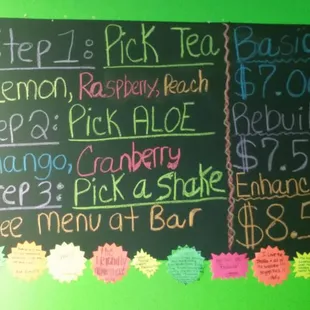 Step 1: Pick Tea
Lemon, Raspberry, Peach
Step 2: Pick ALOE
Mango, Cranberry
Step 3: Pick a Shake
See menu at Bar
Basic
$7.00
Rebuil
$7.5
Enhanc
$8.5